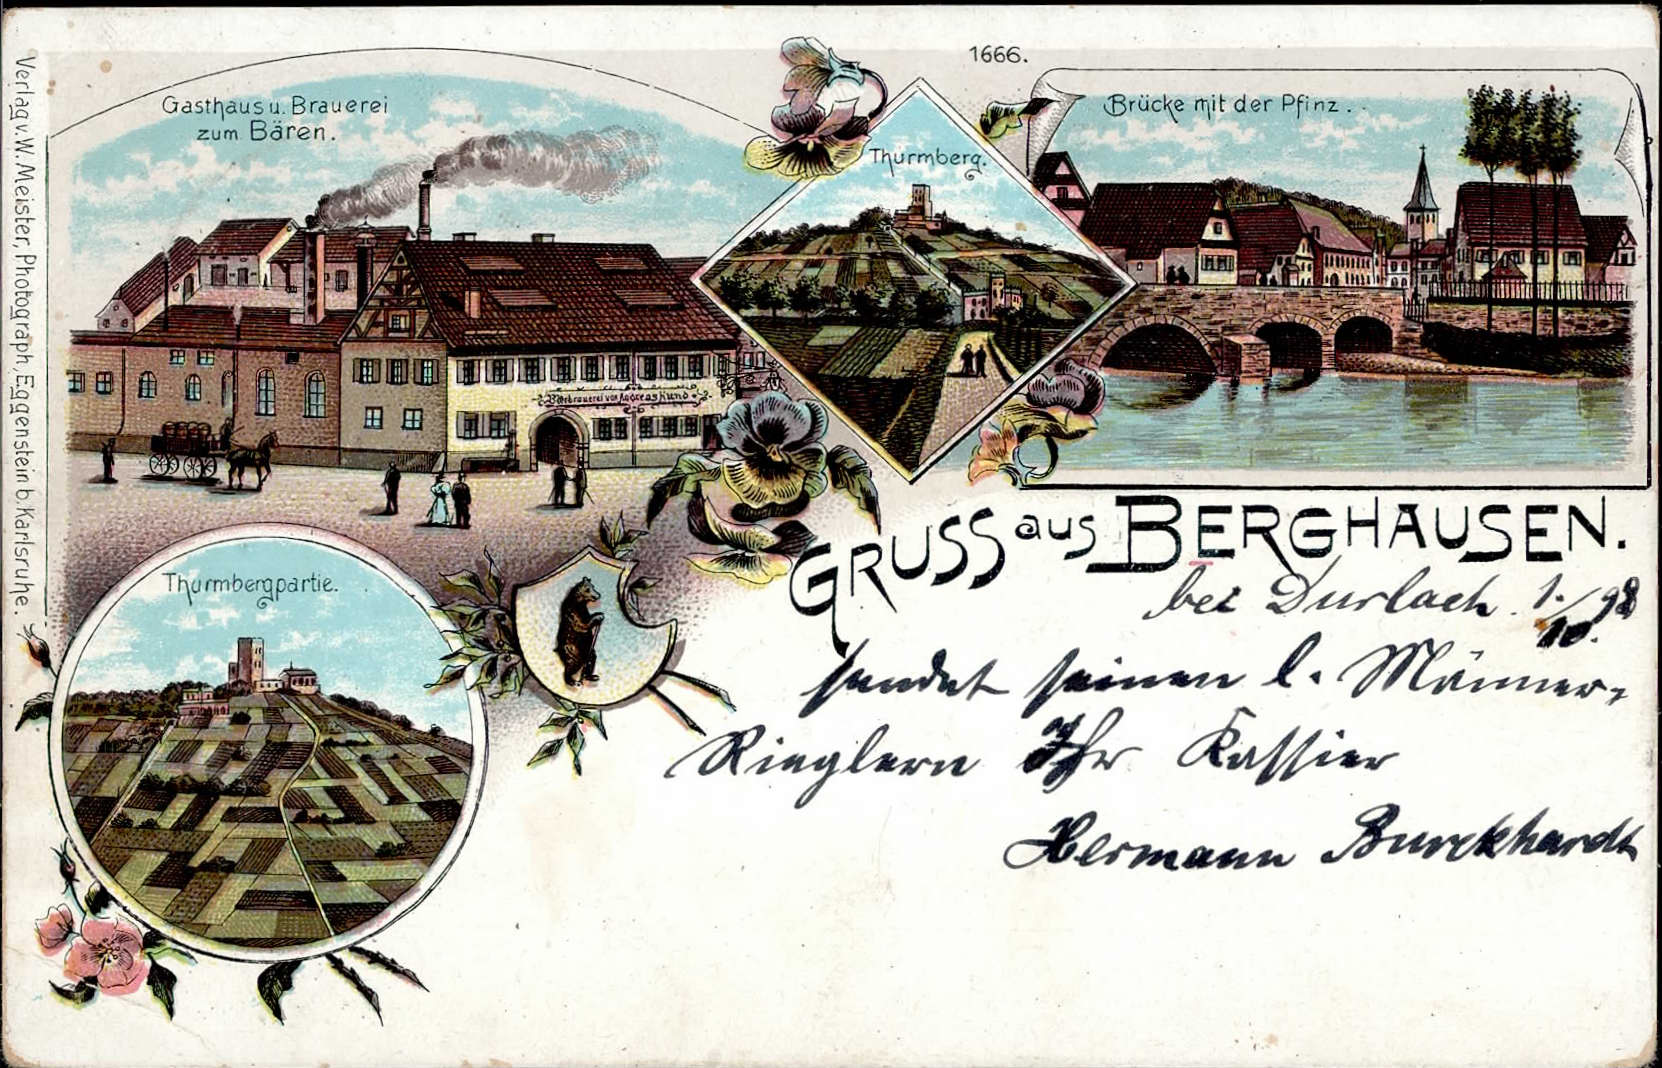 1666.
Verlag v. W. Meister, Photograph, Eggenstein b. Karlsruhe.
Gasthaus u. Brauerei
zum Bären.
Bierbrauerei von Andreas Kund
Thurmberg.
Brücke mit der Pfinz.
Thurmbergpartie.
GRUSS aus BERGHAUSEN.
bei Durlach 1./10. 98
sendet seinen l. Männer-
Rieglern Ihr Kassier
Hermann Burckhardt